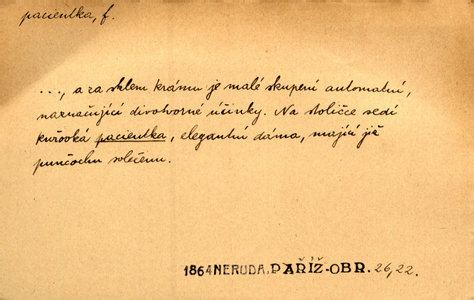 pacientka, f.
..., a za sklem krámu je malé skupení automatní,
naznačující divotvorné účinky. Na stoličce sedí
kuřooká pacientka, elegantní dáma, mající již
punčochu svlečenu.
1864 NERUDA, PAŘÍŽ-OBR. 26,22.